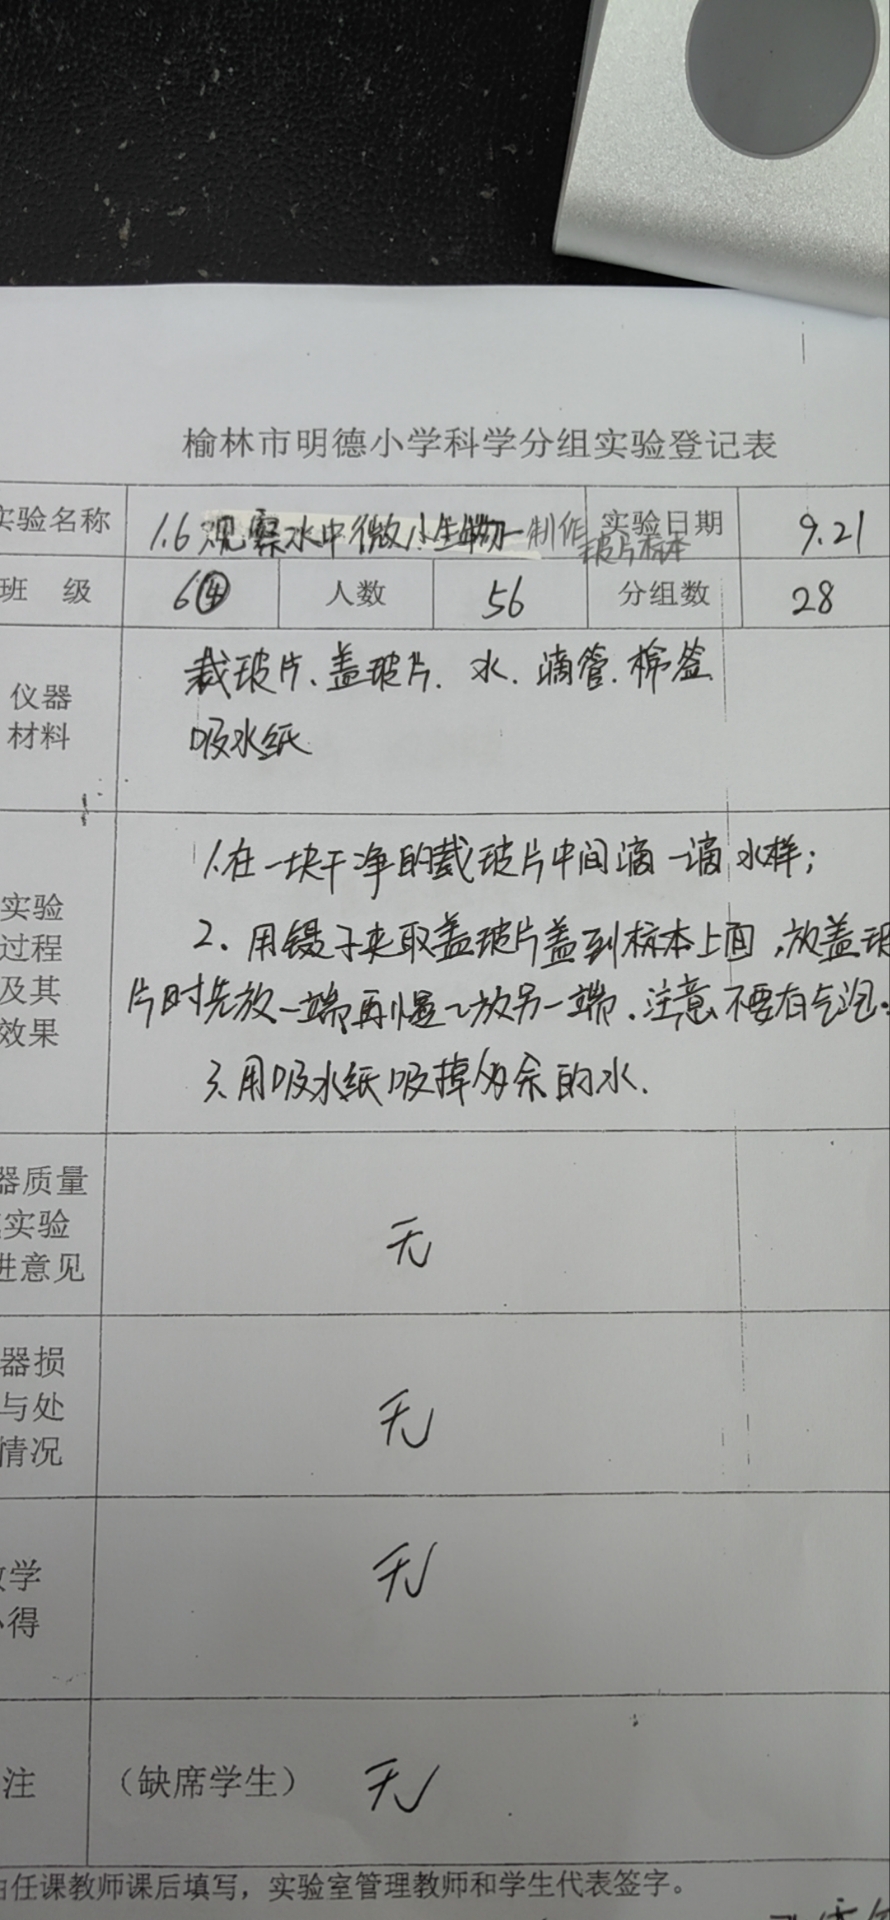 榆林市明德小学科学分组实验登记表
实验名称 1.6 观察水中微小生物—制作玻片标本 实验日期 9.21
班 级 6④ 人数 56 分组数 28
仪器
材料
载玻片、盖玻片、水、滴管、棉签
吸水纸
实验
过程
及其
效果
1.在一块干净的载玻片中间滴一滴水样；
2、用镊子夹取盖玻片盖到标本上面，放盖玻
片时先放一端再慢慢放另一端.注意不要有气泡.
3.用吸水纸吸掉多余的水.
器质量
实验
进意见
无
器损
与处
情况
无
学
得
无
注 （缺席学生） 无
由任课教师课后填写，实验室管理教师和学生代表签字。